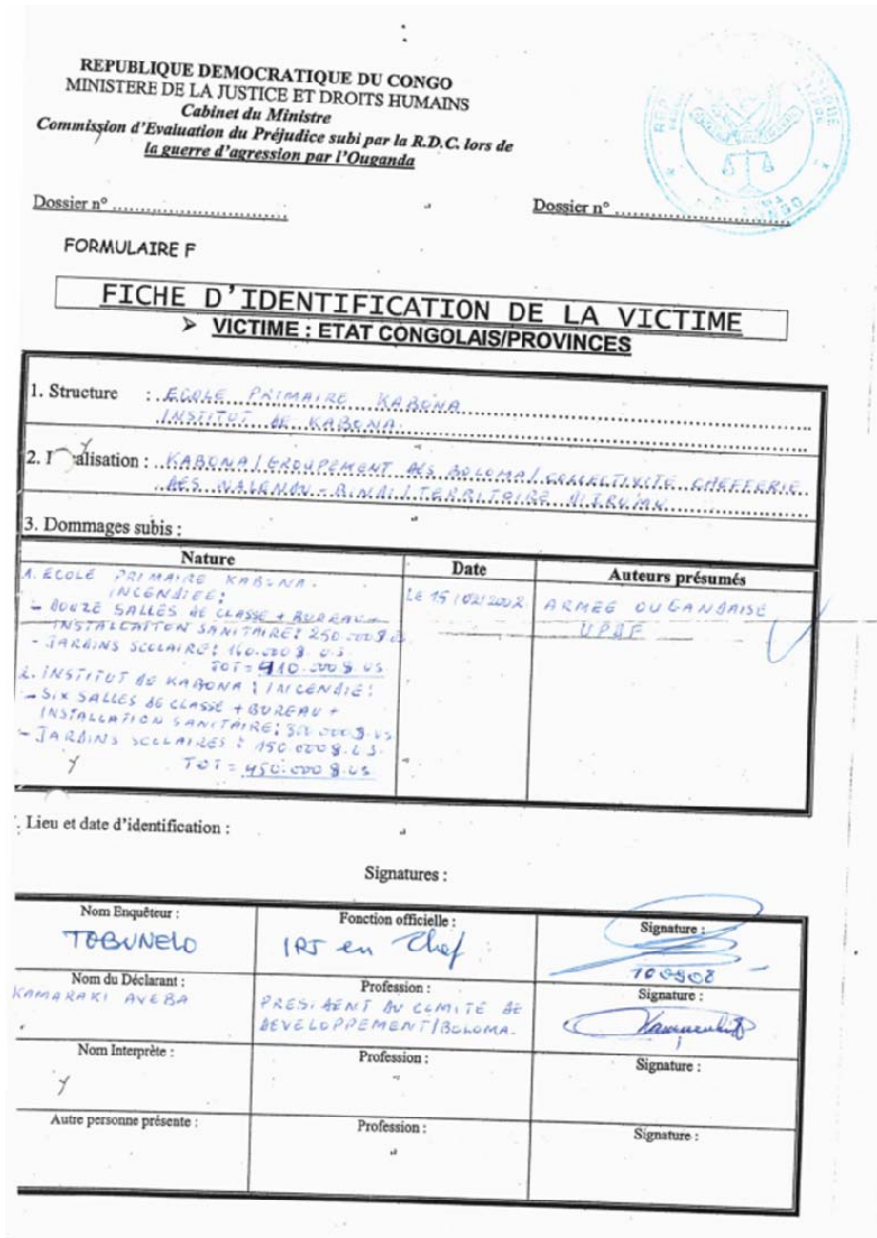 REPUBLIQUE DEMOCRATIQUE DU CONGO
MINISTERE DE LA JUSTICE ET DROITS HUMAINS
Cabinet du Ministre
Commission d'Evaluation du Préjudice subi par la R.D.C. lors de
la guerre d'agression par l'Ouganda
Dossier n° ........................................ Dossier n° ........................................
FORMULAIRE F
FICHE D'IDENTIFICATION DE LA VICTIME
➢ VICTIME : ETAT CONGOLAIS/PROVINCES
1. Structure : ECOLE PRIMAIRE KABONA
INSTITUT DE KABONA
2. l alisation : KABONA/GROUPEMENT DES BOLOMA/COLLECTIVITE CHEFFERIE
DES WALENDU-BINDI/TERRITOIRE D'IRUMU
3. Dommages subis :
Nature Date Auteurs présumés
1. ECOLE PRIMAIRE KABONA.
INCENDIEE:
- DOUZE SALLES DE CLASSE + BUREAU +
INSTALLATION SANITAIRE: 250.000$ US
- JARDINS SCOLAIRE: 160.000$ U.S
TOT = 410.000$ US
2. INSTITUT DE KABONA : INCENDIE:
- SIX SALLES DE CLASSE + BUREAU +
INSTALLATION SANITAIRE: 300.000$.US
- JARDINS SCOLAIRES : 150.000$.U.S.
TOT = 450.000$.US
LE 15/02/2002
ARMEE OUGANDAISE
UPDF
. Lieu et date d'identification :
Signatures :
Nom Enquêteur : Fonction officielle : Signature :
TOBUNELO IPJ en Chef
Nom du Déclarant : Profession : Signature :
KAMARAKI AVEBA PRESIDENT DU COMITE DE
DEVELOPPEMENT/BOLOMA.
Nom Interprète : Profession : Signature :
Autre personne présente : Profession : Signature :